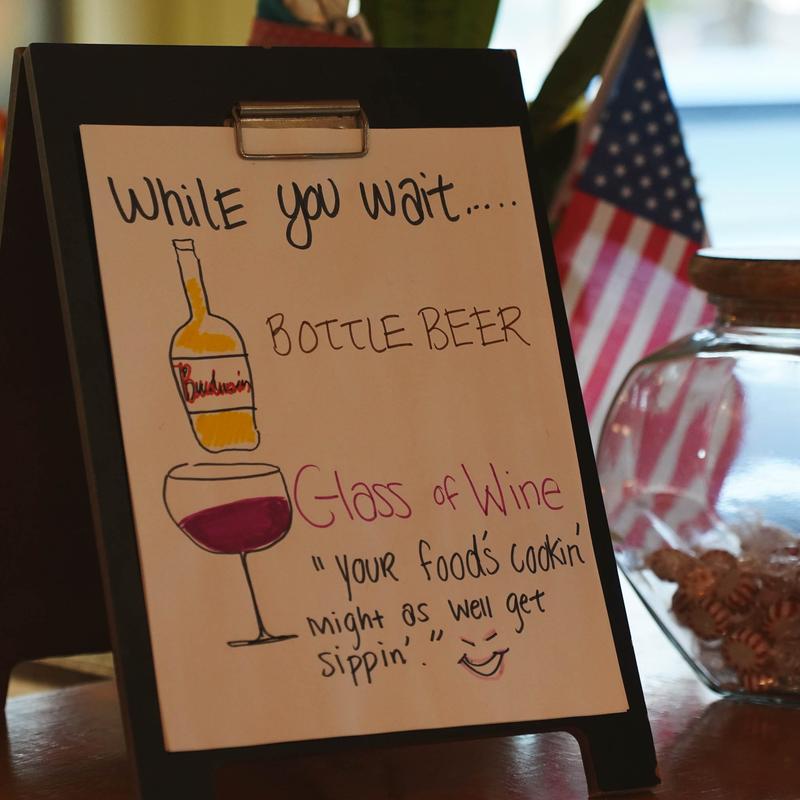 WhilE you wait.....
BOTTLE BEER
Glass of Wine
"YOUR food's cookin'
might as well get
sippin'."